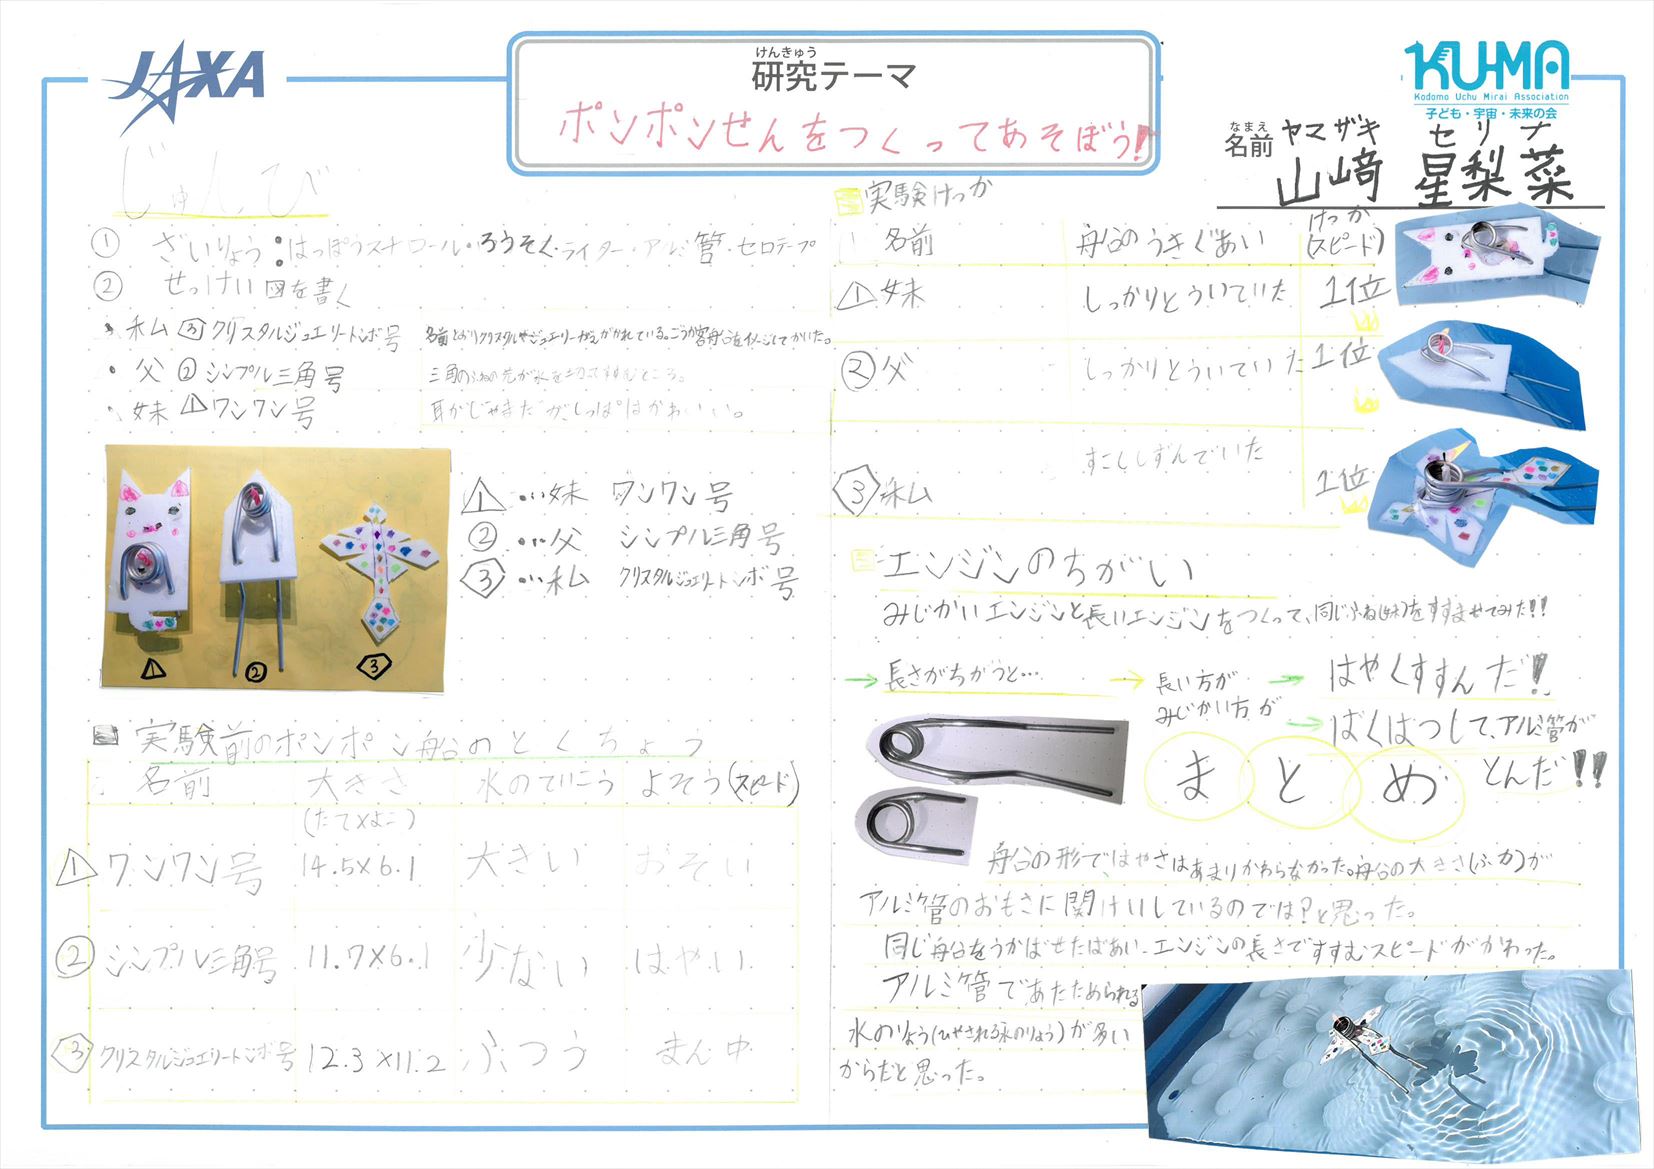 JAXA
けんきゅう
研究テーマ
ポンポンせんをつくってあそぼう!
KU-MA
Kodomo Uchu Mirai Association
子ども・宇宙・未来の会
なまえ
名前
ヤマザキ セリナ
山﨑 星梨菜
じゅんび
① ざいりょう:はっぽうスチロール・ろうそく・ライター・アルミ管・セロテープ
② せっけい図を書く
・私 ③クリスタルジュエリートンボ号 名前とおりクリスタルやジュエリーがえがかれている。ごうか客船をイメージしてかいた。
・父 ②シンプル三角号 三角のふねの先が水を切ってすすむところ。
・妹 1ワンワン号 耳がじゃまだが、しっぽはかわいい。
1 ② 3
1…妹 ワンワン号
②…父 シンプル三角号
3…私 クリスタルジュエリートンボ号
実験前のポンポン船のとくちょう
名前 大きさ(たて×よこ) 水のていこう よそう(スピード)
1 ワンワン号 14.5×6.1 大きい おそい
② シンプル三角号 11.7×6.1 少ない はやい
3 クリスタルジュエリートンボ号 12.3×11.2 ふつう まん中
実験けっか
名前 船のうきぐあい けっか(スピード)
1 妹 しっかりとういていた 1位
② 父 しっかりとういていた 1位
3 私 すこししずんでいた 1位
エンジンのちがい
みじかいエンジンと長いエンジンをつくって、同じふね(妹)をすすませてみた!!
→長さがちがうと…
→長い方が→はやくすすんだ!
みじかい方が→ばくはつして、アルミ管がとんだ!!
まとめ
船の形で、はやさはあまりかわらなかった。船の大きさ(ふか)が
アルミ管のおもさに関けいしているのでは?と思った。
同じ船をうかばせたばあい、エンジンの長さですすむスピードがかわった。
アルミ管であたためられる
水のりょう(ひやされる水のりょう)が多い
からだと思った。